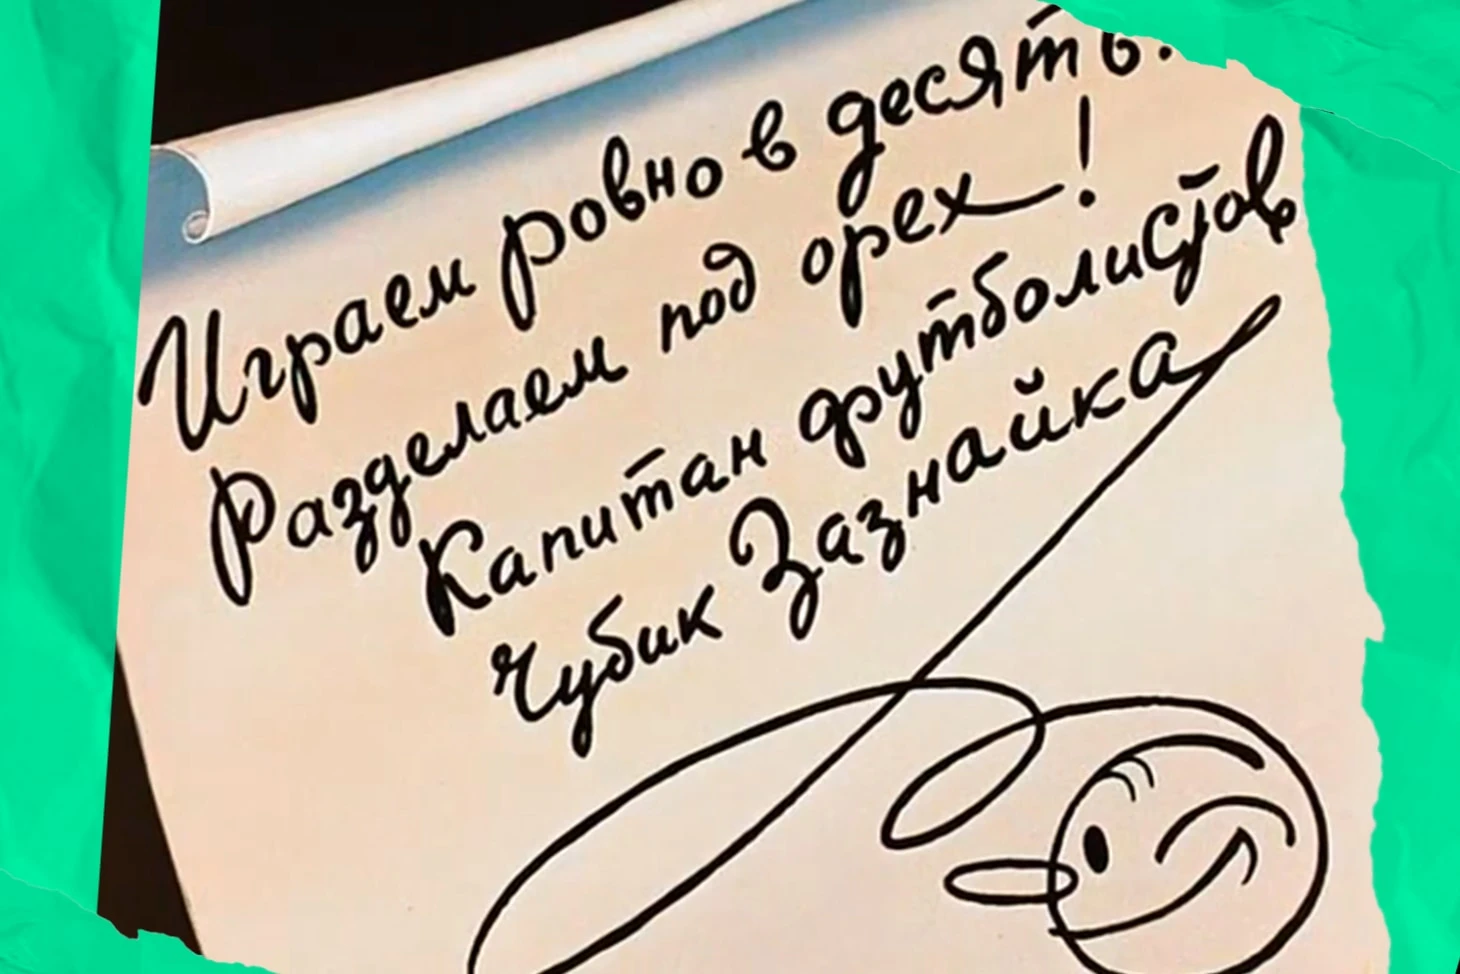 Играем ровно в десять.
Разделаем под орех!
Капитан фрутболистов
Чубик Зазнайка